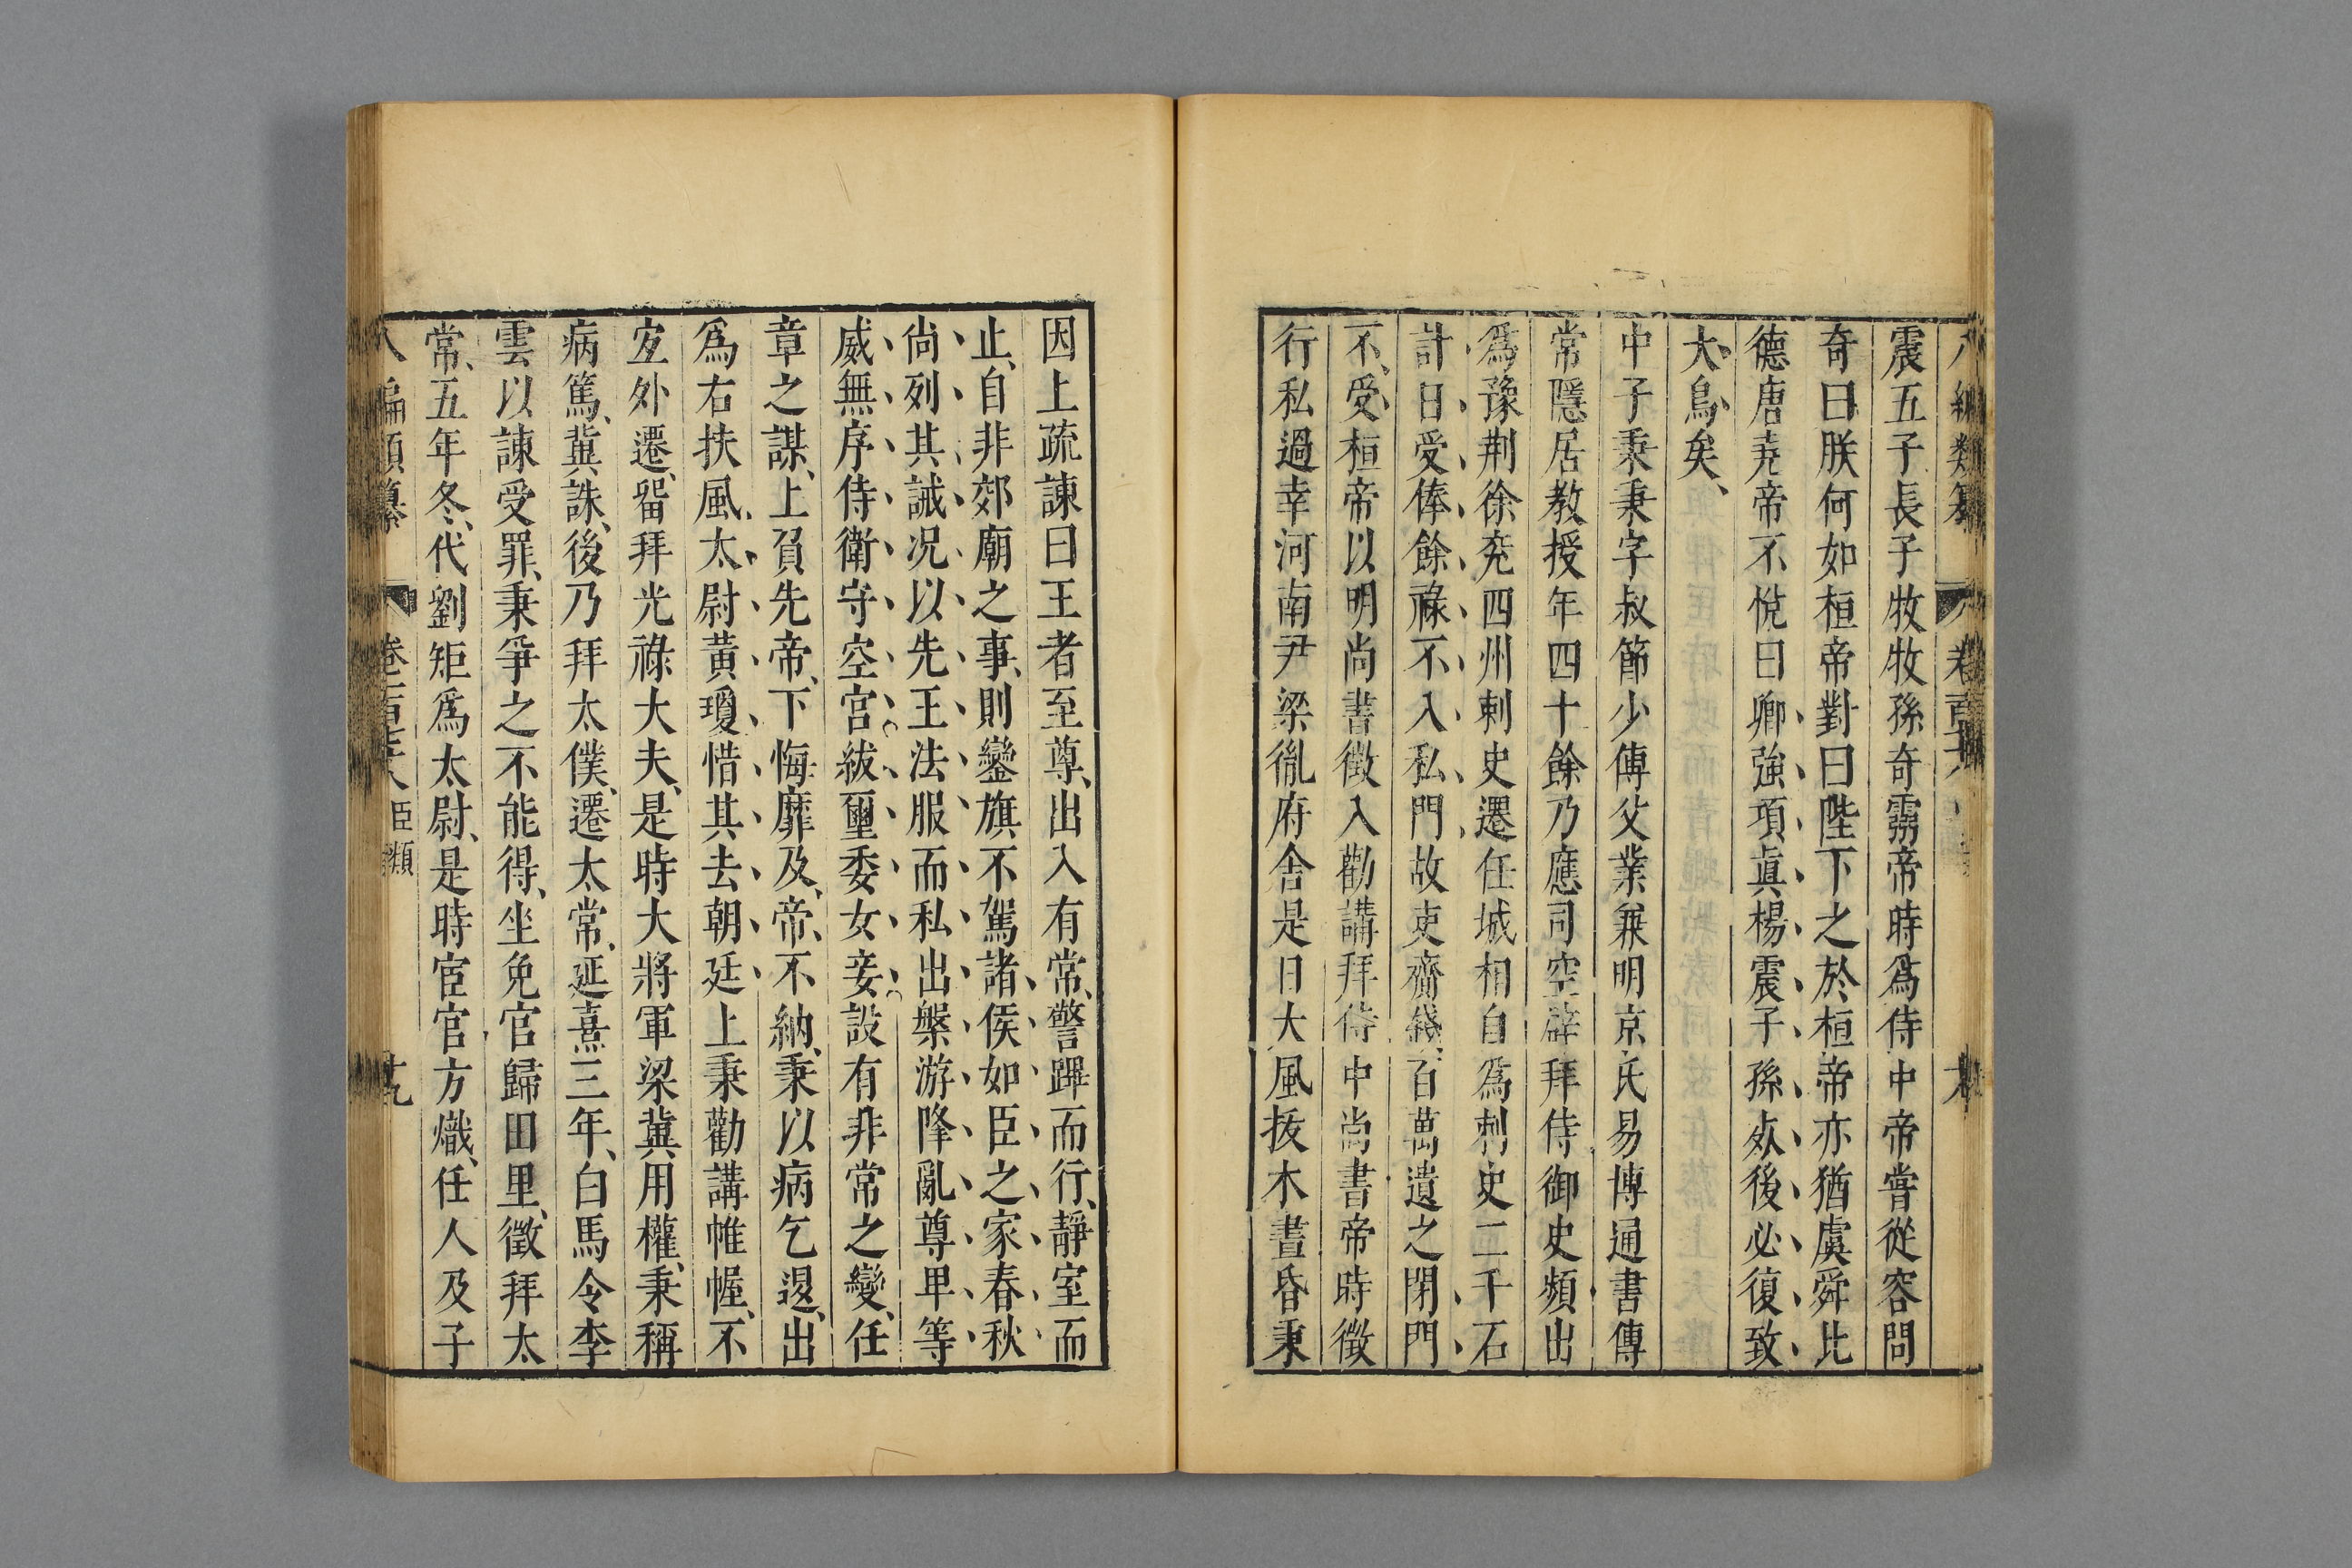 震五子長子牧牧孫奇靈帝時爲侍中帝嘗從容問
奇曰朕何如桓帝對曰陛下之於桓帝亦猶虞舜比
德唐堯帝不悅曰卿強項真楊震子孫死後必復致
大鳥矣
中子秉秉字叔節少傳父業兼明京氏易博通書傳
常隱居教授年四十餘乃應司空辟拜侍御史頻出
爲豫荆徐兖四州刺史遷任城相自爲刺史二千石
計日受俸餘祿不入私門故吏齎錢百萬遺之閉門
不受桓帝以明尚書徵入勸講拜侍中尚書帝時微
行私過幸河南尹梁胤府舍是日大風拔木晝昏秉
因上疏諫曰王者至尊出入有常警蹕而行靜室而
止自非郊廟之事則鑾旗不駕諸侯如臣之家春秋
尚列其誡况以先王法服而私出槃游降亂尊卑等
威無序侍衛守空宫紱璽委女妾設有非常之變任
章之謀上負先帝下悔靡及帝不納秉以病乞退出
爲右扶風太尉黃瓊惜其去朝廷上秉勸講帷幄不
宜外遷留拜光祿大夫是時大將軍梁冀用權秉稱
病篤冀誅後乃拜太僕遷太常延熹三年白馬令李
雲以諫受罪秉爭之不能得坐免官歸田里徵拜太
常五年冬代劉矩爲太尉是時宦官方熾任人及子
八編類纂 卷一百七十八 臣類 十九